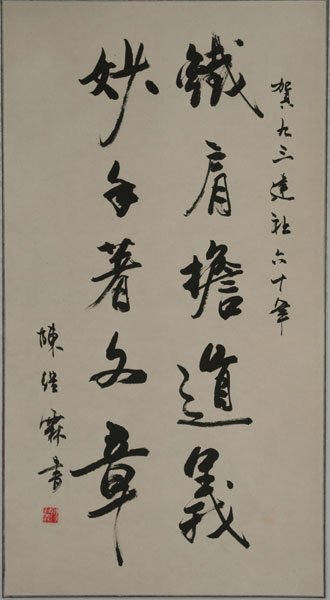 賀九三建社六十年
鐵肩擔道義
妙手著文章
陳霖書